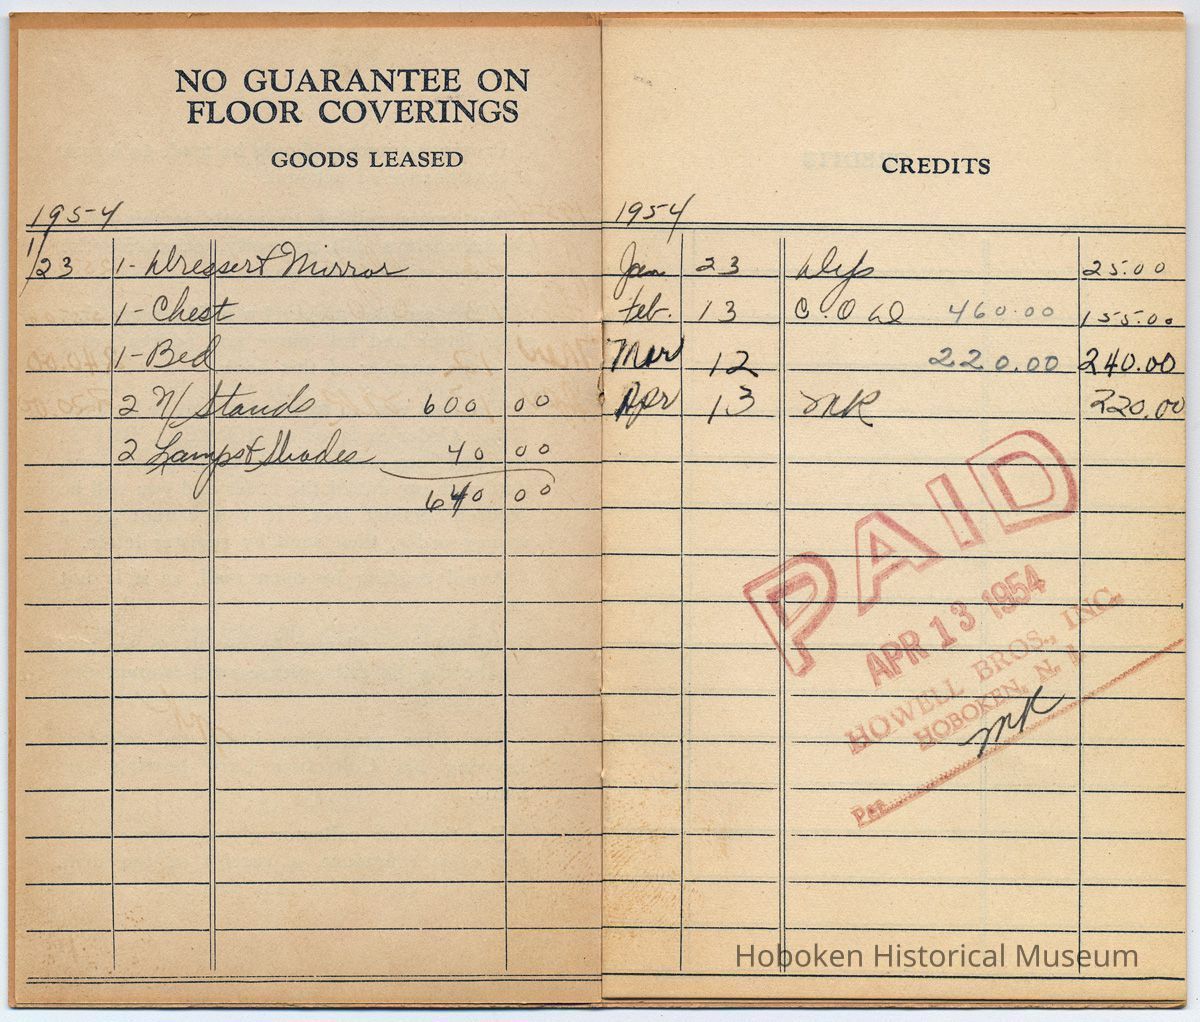 NO GUARANTEE ON
FLOOR COVERINGS
GOODS LEASED
1954
1/23 1- Dresser & Mirror
1- Chest
1- Bed
2 N/Stands 600 00
2 Lamps & Shades 40 00
640 00
CREDITS
1954
Jan 23 Dep 25.00
Feb. 13 C.O.D 460.00 155.00
Mar 12 220.00 240.00
Apr 13 MR 220.00
PAID
APR 13 1954
HOWELL BROS., INC.
HOBOKEN, N. J.
MR
Per
Hoboken Historical Museum